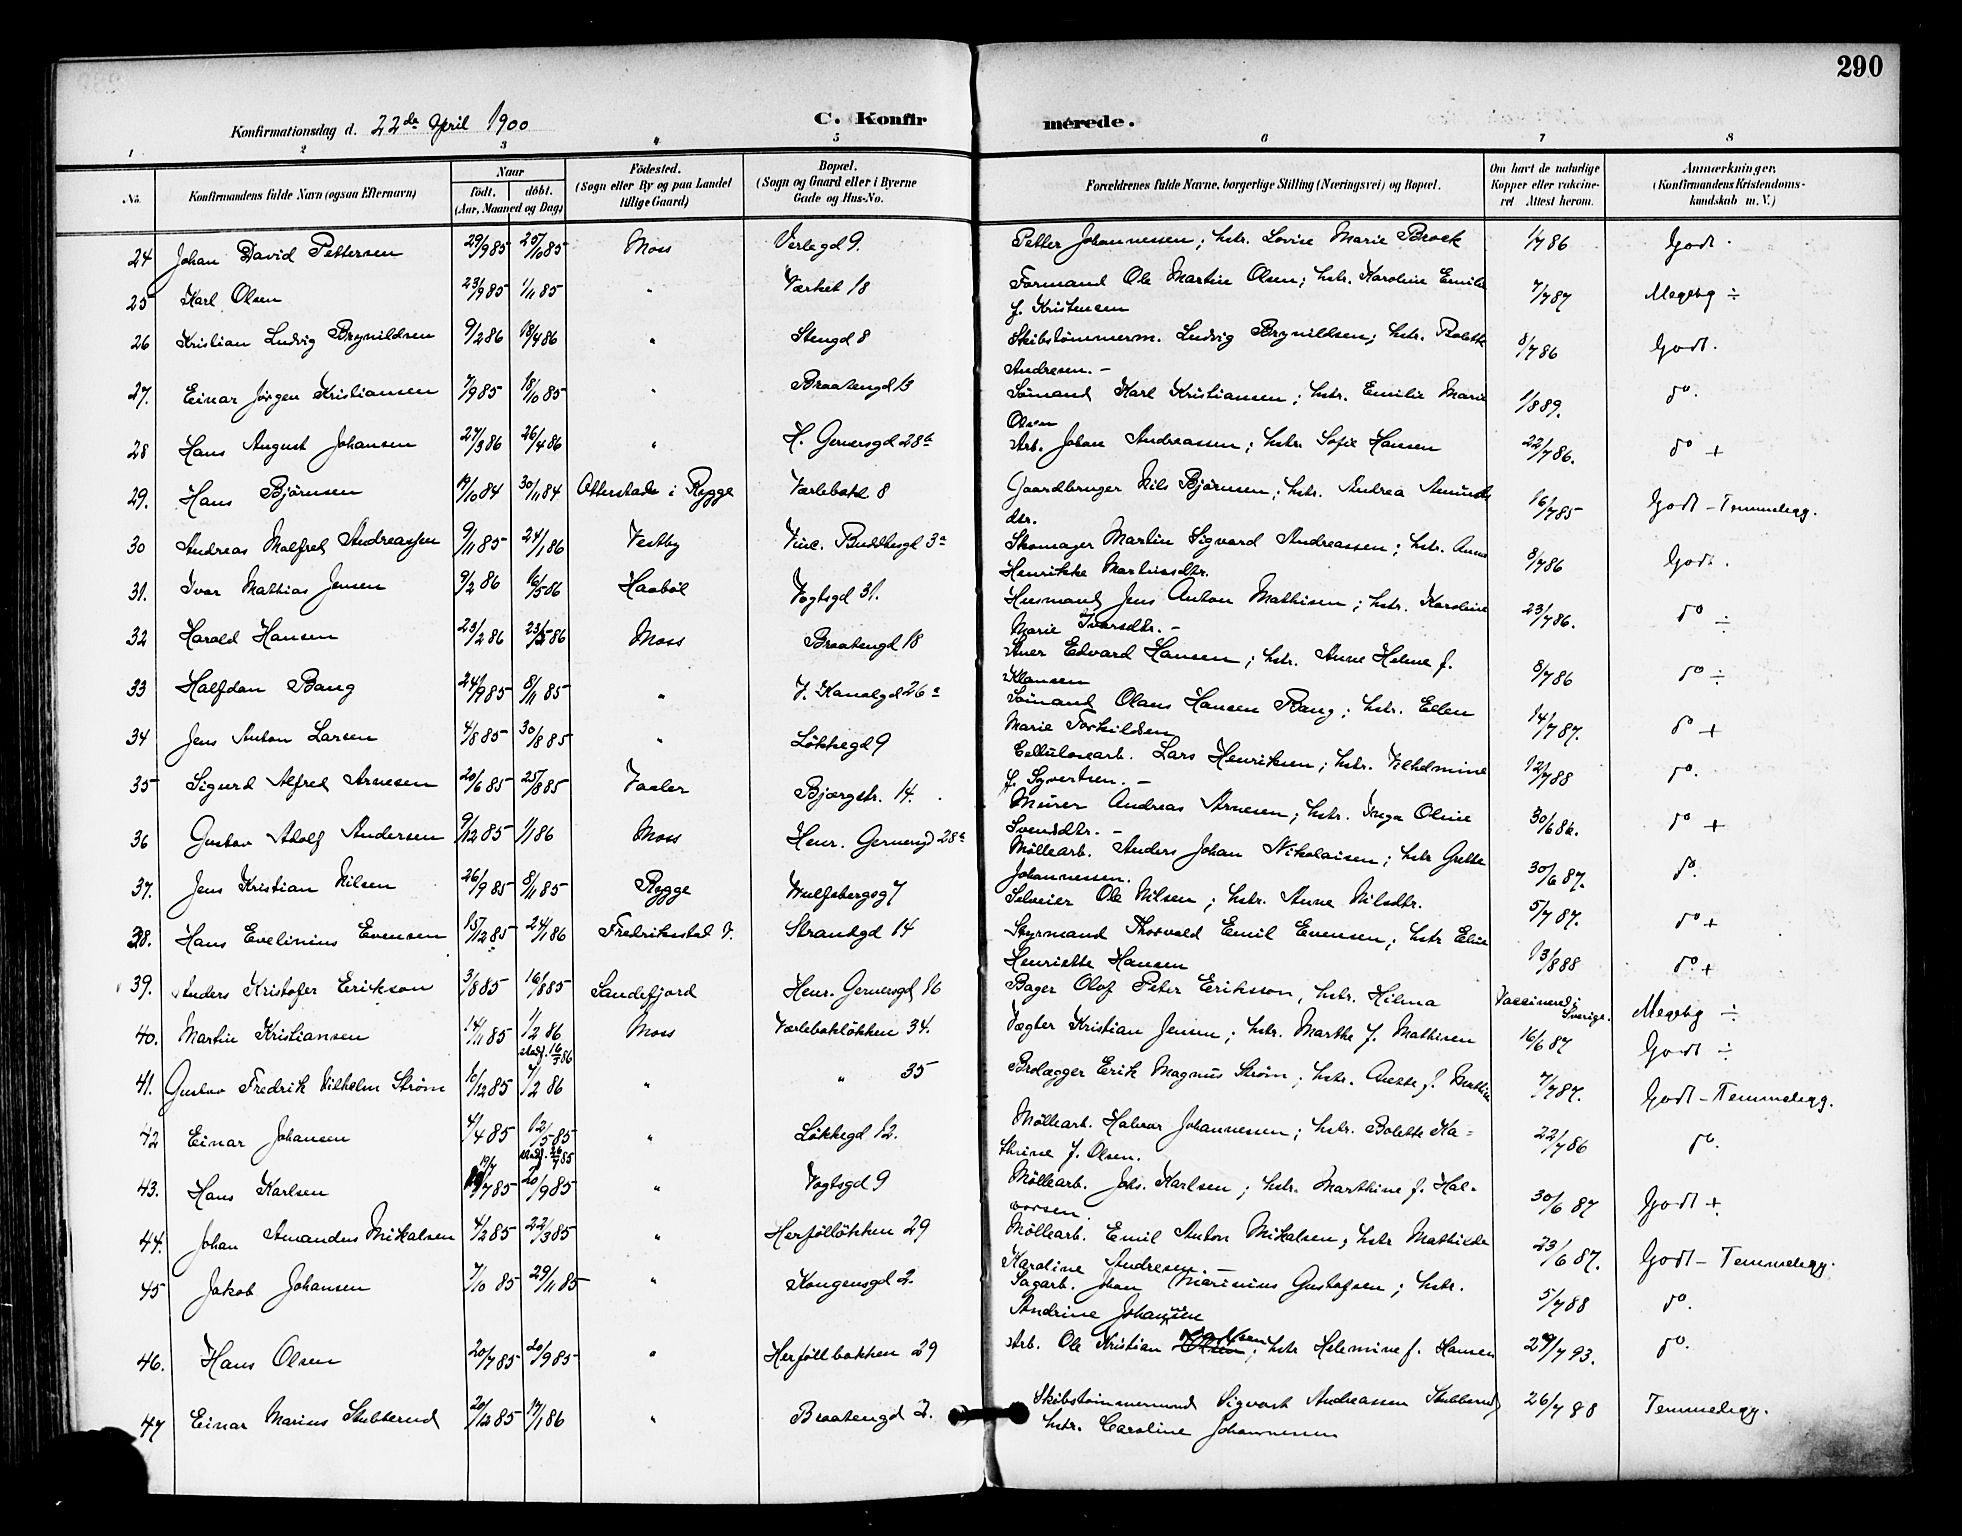 290
Konfirmationsdag d. 22de April 1900 C. Konfirmerede.
1 2 3 4 5 6 7 8
No. Konfirmandens fulde Navn (ogsaa Efternavn) Naar födt. döbt. (Aar, Maaned og Dag) Födested. (Sogn eller By og paa Landet tillige Gaard) Bopæl. (Sogn og Gaard eller i Byerne Gade og Hus-No. Forældrenes fulde Navne, borgerlige Stilling (Næringsvei) og Bopæl. Om havt de naturlige Kopper eller vakcineret Attest herom. Anmærkninger. (Konfirmandens Kristendomskundskab m. V.)
24 Johan David Pettersen 29/9 85 25/10 85 Moss Værlegd 9. Petter Johannessen; hstr. Lovise Marie Brock 1/7 86 Godt.
25 Karl Olsen 23/9 85 1/11 85 " Værket 18 Formand Ole Martin Olsen; hstr. Karoline Emilie
f. Kristensen 7/7 87 Megetg ÷
26 Kristian Ludvig Brynildsen 9/2 86 18/4 86 " Stengd 8 Skibstømmerm. Ludvig Brynildsen; hstr. Bolette
Andresen. - 8/7 86 Godt.
27. Einar Jörgen Kristiansen 7/9 85 18/10 85 " Braatengd 13 Sömand Karl Kristiansen; hstr. Emilie Marie
Olsen 1/8 89. do.
28 Hans August Johansen 27/3 86 26/4 86 " H. Gernersgd 28b Arb. Johan Andreassen; hstr. Sofie Hansen 22/7 86. do +
29. Hans Björnsen 19/10 84 30/11 84 Otterstad i Rygge Værlebakk 8 Gaardbruger Nils Björnsen; hstr. Andrea Amunds
dtr. 16/7 85 Godt - Temmeligg.
30 Andreas Malfred Andreassen 9/11 85 24/1 86 Vestby Vinc. Buddhesgd 3a Skomager Martin Sigvard Andreassen; hstr. Anne
Henrikke Martinsdtr. 8/7 86 Godt.
31. Ivar Mathias Jensen 9/2 86 16/5 86 Haaböl Vogtsgd 31. Husmand Jens Anton Mathisen; hstr. Karoline
Marie Ivarsdtr. - 23/7 86. do ÷
32 Harald Hansen 23/2 86 23/5 86 Moss Braatengd 18 Edvard Hansen; hstr. Anne Helene f.
Klausen 8/7 86 do ÷
33 Halfdan Bang 24/9 85 8/11 85 " V. Kanalgd 26a Sömand Olaus Hansen Bang; hstr. Ellen
Marie Torkildsen 14/7 87. do +
34 Jens Anton Larsen 4/8 85 30/8 85 " Lökkegd 9 Cellulosearb. Lars Henriksen; hstr. Vilhelmine
f. Syvertsen. - 12/7 88 do.
35 Sigurd Alfred Arnesen 20/6 85 25/8 85 Vaaler Bjærgstr. 14. Murer Andreas Arnesen; hstr. Inga Oline
Svendsdtr. - 30/6 86. do +
36 Gustav Adolf Andersen 9/12 85 1/1 86 Moss Henr. Gernersgd 28a Möllearb. Anders Johan Nikolaisen; hstr Grethe
Johannessen. 30/6 87. do.
37. Jens Kristian Nilsen 26/9 85 8/11 85 Rygge Wulfsbergsg 7 Selveier Ole Nilsen; hstr. Anne Nilsdtr. 5/7 87. do +
38. Hans Evelinius Evensen 15/12 85 24/1 86 Fredriksstad V. Strandgd 14 Styrmand Thorvald Emil Evensen; hstr Elise
Henriette Hansen 13/8 88 do. +
39. Anders Kristofer Erikson 3/8 85 16/8 85 Sandefjord Henr. Gernersgd 16 Bager Olof Peter Eriksson, hstr. Hilma Vaccinered i
Sverige. Megetg ÷
40. Martin Kristiansen 14/11 85 1/2 86 Moss Værlebaklökken 34. Vægter Kristian Jensen; hstr. Marthe f. Mathisen 16/6 87 Godt ÷
stadf. 16/5 86
41. Gustav Fredrik Vilhelm Ström 10/12 85 7/2 86 " " 35 Brolægger Erik Magnus Ström; hstr. Anette f. Mathisen 7/7 87. Godt - Temmeligg.
42 Einar Johansen 4/4 85 12/5 85 " Lökkegd 12. Möllearb. Halvor Johannessen; hstr. Bolette Ka-
stadf. 26/7 85 thrine f. Olsen. 22/7 86 do.
43. Hans Karlsen 19/7 85 20/9 85 " Vogtsgd 9 Möllearb. Johs. Karlsen; hstr. Marthine f. Hal-
vorsen. 30/6 87 Godt +
44. Johan Amandus Mikalsen 4/2 85 22/3 85 " Herföllökken 29 Möllearb. Emil Anton Mikalsen; hstr Mathilde
Karoline Andresen. - 23/6 87. Godt - Temmeligg.
45 Jakob Johansen 7/10 85 29/11 85 " Kongensgd 2. Sagarb. Johan Marinius Gustafsen; hstr.
Andrine Johannsen 5/7 88 do.
46. Hans Olsen 20/7 85 20/9 85 " Herföllbakken 29 Arb. Ole Kristian Karlsen; hstr Helemine f. Hansen 29/7 93. do.
47 Einar Marius Stubberud 20/12 85 17/1 86 " Braatengd 2. Skibstömmermand Sigvart Andreassen Stubberud
hstr. Caroline Johannessen 26/7 88 Temmeligg.